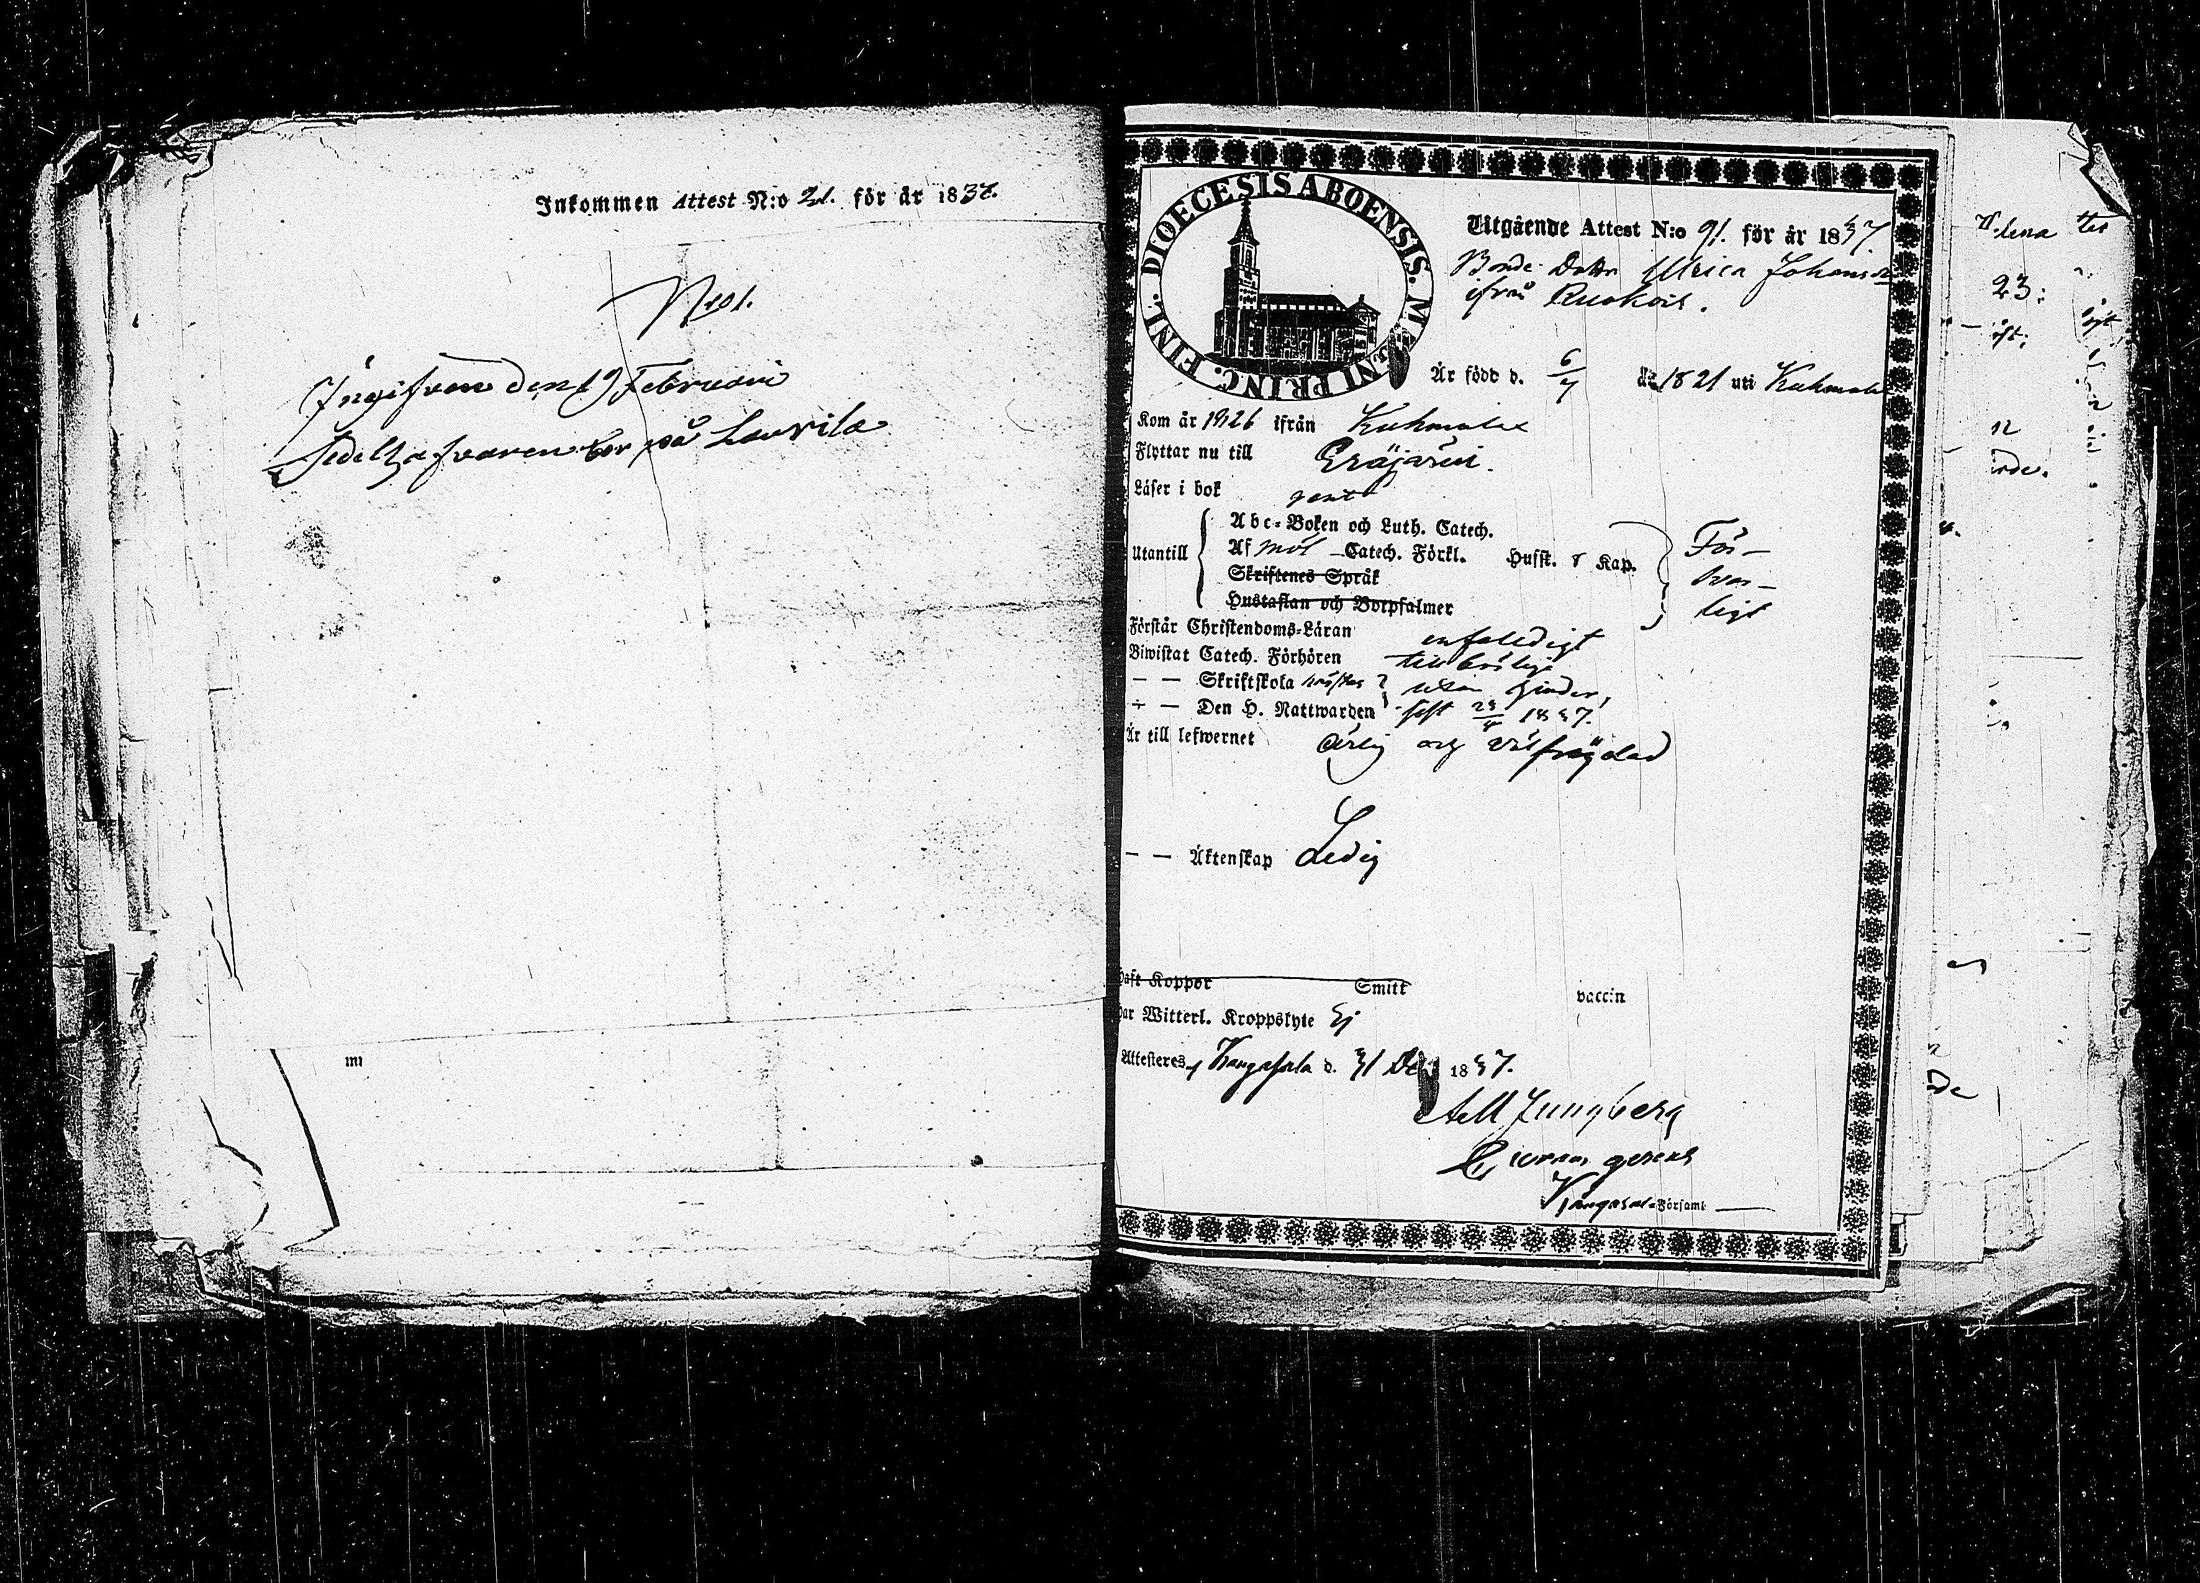 Inkommen Attest N:o 21. för år 1837.
N:o 1.
Ingifven den 19 Februari
Sedelhafvaren bor på Laurila
DIOECESIS ABOENSIS. M. PRINC. FINL.
Utgående Attest N:o 91. för år 1837.
Bonde Dottr Ulrica Johansdr
ifrån Ruokois.
Är född d. 6/7 år 1821 uti Kuhmalax
Kom år 1826 ifrån Kuhmalax
Flyttar nu till Eräjärvi.
Läser i bok gent
Utantill
Abc-Boken och Luth. Catech.
Af Möl Catech. Förkl. Hufst. 8 Kap.
Skriftenes Språk
Hustaflan och Botpsalmer
För-
svar-
ligt
Förstår Christendoms-Läran enfaldigt
Biwistat Catech. Förhören tillbörligt
— — Skriftskola utan hinder,
— — Den H. Nattwarden sist 23/4 1837.
Är till lefwernet ärlig och välfrägdad
— — Äktenskap Ledig
Haft Koppor Smitt vaccin
Har Witterl. Kroppslyte Ej
Attesteras, Kangasala d. 31 Dec 1837.
Ljungberg
gerens
Kangasala Församl
lena
23: